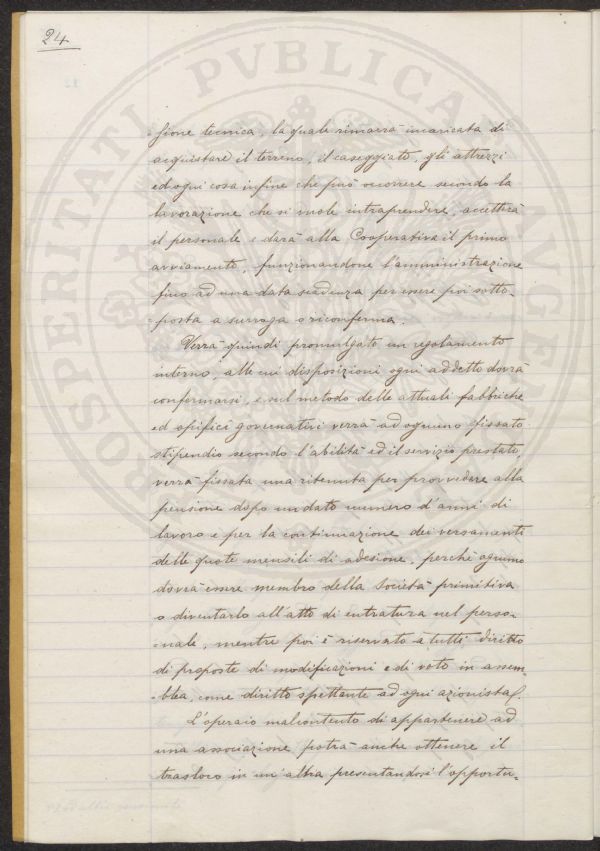 24
PROSPERITATI PVBLICAE AVGENDAE
-zione tecnica, la quale rimarrà incaricata di
acquistare il terreno, il caseggiato, gli attrezzi
ed ogni cosa infine che può occorrere secondo la
lavorazione che si vuole intraprendere, accetterà
il personale e darà alla Cooperativa il primo
avviamento, funzionandone l'amministrazione
fino ad una data scadenza per essere poi sotto-
-posta a surroga o riconferma.
Verrà quindi promulgato un regolamento
interno, alle cui disposizioni ogni addetto dovrà
confermarsi, e sul metodo delle attuali fabbriche
ed opifici governativi verrà ad ognuno fissato
stipendio secondo l'abilità ed il servizio prestato,
verrà fissata una ritenuta per provvedere alla
pensione dopo un dato numero d'anni di
lavoro e per la continuazione dei versamenti
delle quote mensili di adesione, perché ognuno
dovrà essere membro della Società primitiva
o diventarlo all'atto di entratura nel perso-
-nale, mentre poi è riservato a tutti diritto
di proposte di modificazioni e di voto in assem-
-blea, come diritto spettante ad ogni azionista.
L'operaio malcontento di appartenere ad
una associazione potrà anche ottenere il
trasloco in un'altra presentandosi l'opportu-